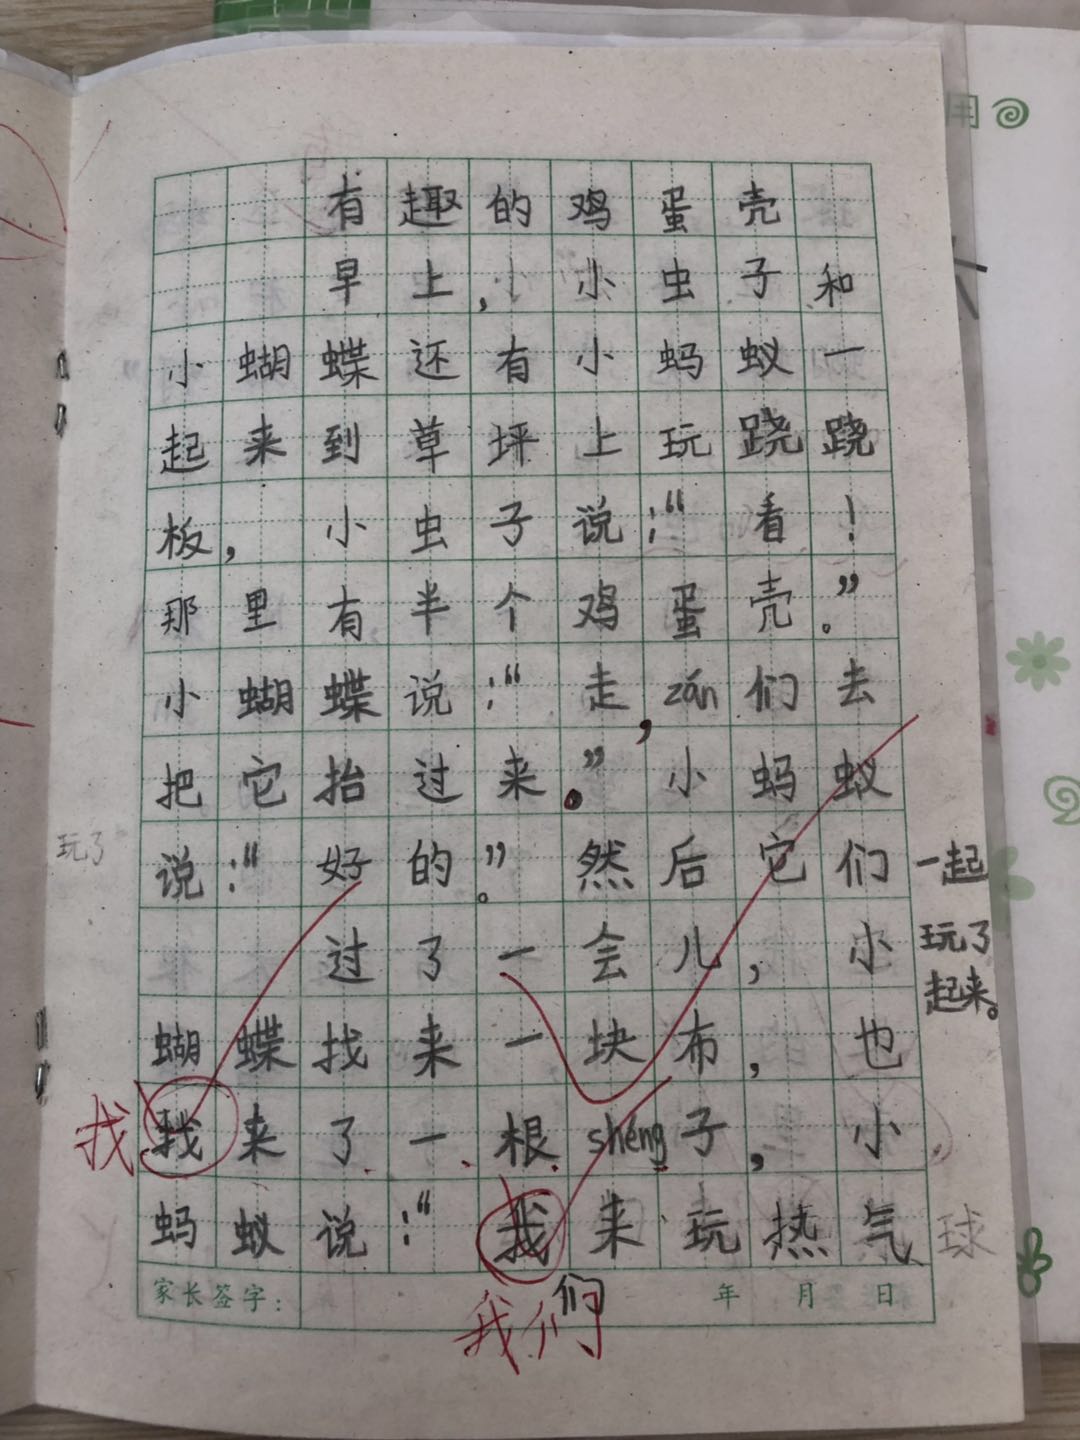 有趣的鸡蛋壳
早上,小小虫子和
小蝴蝶还有小蚂蚁一
起来到草坪上玩跷跷
板,小虫子说:“看!
那里有半个鸡蛋壳。”
小蝴蝶说:“走,zán们去
把它抬过来。”小蚂蚁
说:“好的”。然后它们一起
玩了
玩了
起来。
过了一会儿,小
蝴蝶找来一块布,也
找我来了一根shéng子,小
蚂蚁说:“我来玩热气球
家长签字: 年 月 日
们
我们